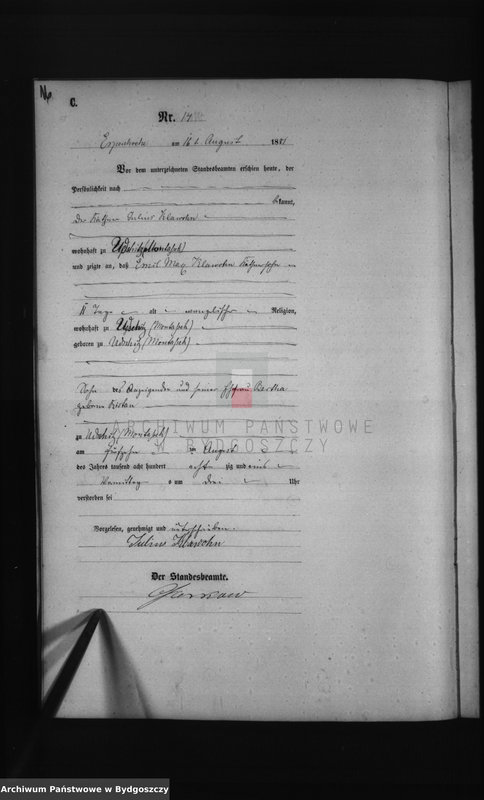 C.
Nr. 17
am 16 t August 1881
Vor dem unterzeichneten Standesbeamten erschien heute, der
Persönlichkeit nach
kannt,
der Käthner Julius Klawohn
wohnhaft zu Udschitz (Montasek)
und zeigte an, daß Emil Max Klawohn Käthnersohn
11 Tage alt evangelischer Religion,
wohnhaft zu Udschitz (Montasek)
geboren zu Udschitz (Montasek)
Sohn des Anzeigenden und seiner Ehefrau Bertha
geborene
zu Udschitz (Montasek)
am fünfzehn ten August
des Jahres tausend acht hundert achtzig und eins
Vormittags um drei Uhr
verstorben sei
Vorgelesen, genehmigt und unterschrieben.
Julius Klawohn
Der Standesbeamte.
ARCHIWUM PAŃSTWOWE
W BYDGOSZCZY
Archiwum Państwowe w Bydgoszczy